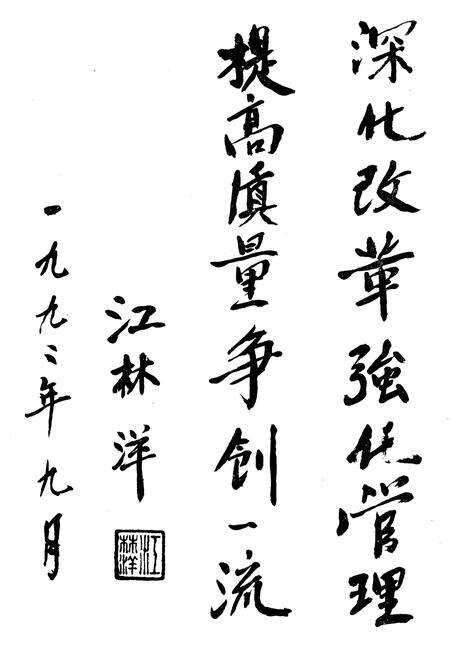 深化改革強化管理
提高质量争创一流
江林洋
江林洋
一九九二年九月